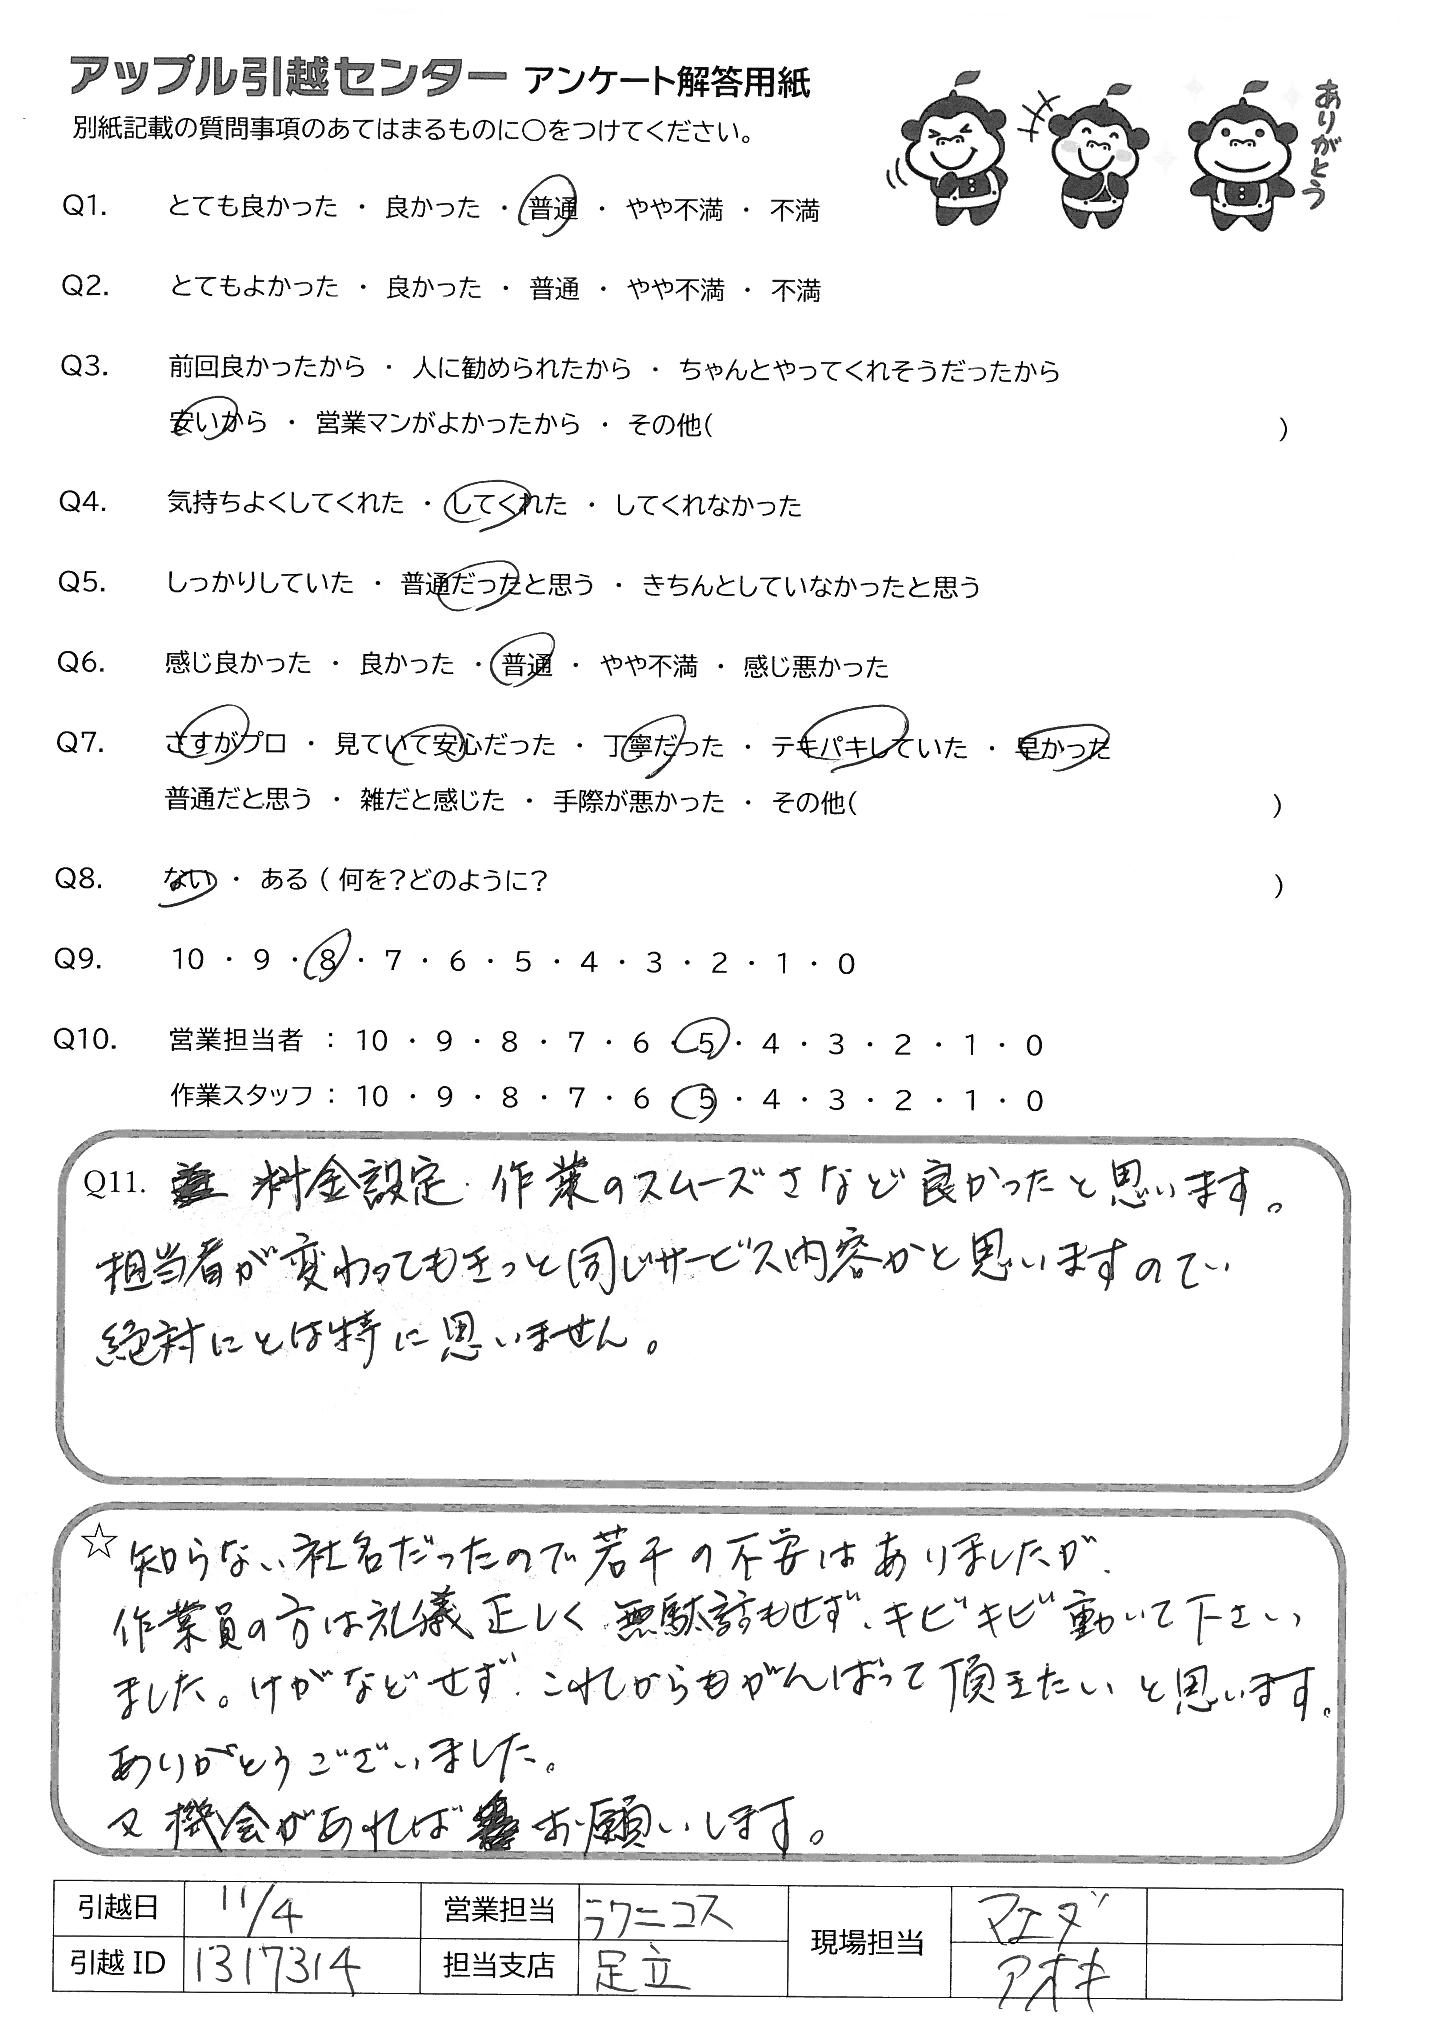 アップル引越センター アンケート解答用紙
別紙記載の質問事項のあてはまるものに○をつけてください。
ありがとう
Q1. とても良かった ・ 良かった ・ 普通 ・ やや不満 ・ 不満
Q2. とてもよかった ・ 良かった ・ 普通 ・ やや不満 ・ 不満
Q3. 前回良かったから ・ 人に勧められたから ・ ちゃんとやってくれそうだったから
安いから ・ 営業マンがよかったから ・ その他( )
Q4. 気持ちよくしてくれた ・ してくれた ・ してくれなかった
Q5. しっかりしていた ・ 普通だったと思う ・ きちんとしていなかったと思う
Q6. 感じ良かった ・ 良かった ・ 普通 ・ やや不満 ・ 感じ悪かった
Q7. さすがプロ ・ 見ていて安心だった ・ 丁寧だった ・ テキパキしていた ・ 早かった
普通だと思う ・ 雑だと感じた ・ 手際が悪かった ・ その他( )
Q8. ない ・ ある ( 何を?どのように? )
Q9. 10 ・ 9 ・ 8 ・ 7 ・ 6 ・ 5 ・ 4 ・ 3 ・ 2 ・ 1 ・ 0
Q10. 営業担当者 : 10 ・ 9 ・ 8 ・ 7 ・ 6 ・ 5 ・ 4 ・ 3 ・ 2 ・ 1 ・ 0
作業スタッフ : 10 ・ 9 ・ 8 ・ 7 ・ 6 ・ 5 ・ 4 ・ 3 ・ 2 ・ 1 ・ 0
Q11. 料金設定、作業のスムーズさなど良かったと思います。
担当者が変わってもきっと同じサービス内容かと思いますので
絶対にとは特に思いません。
☆ 知らない社名だったので若干の不安はありましたが、
作業員の方は礼儀正しく無駄話もせず、キビキビ動いて下さい
ました。けがなどせず、これからもがんばって頂きたいと思います。
ありがとうございました。
又機会があればお願いします。
引越日 11/4 営業担当 ラクニコス 現場担当 マエダ
引越 ID 1317314 担当支店 足立 アオキ